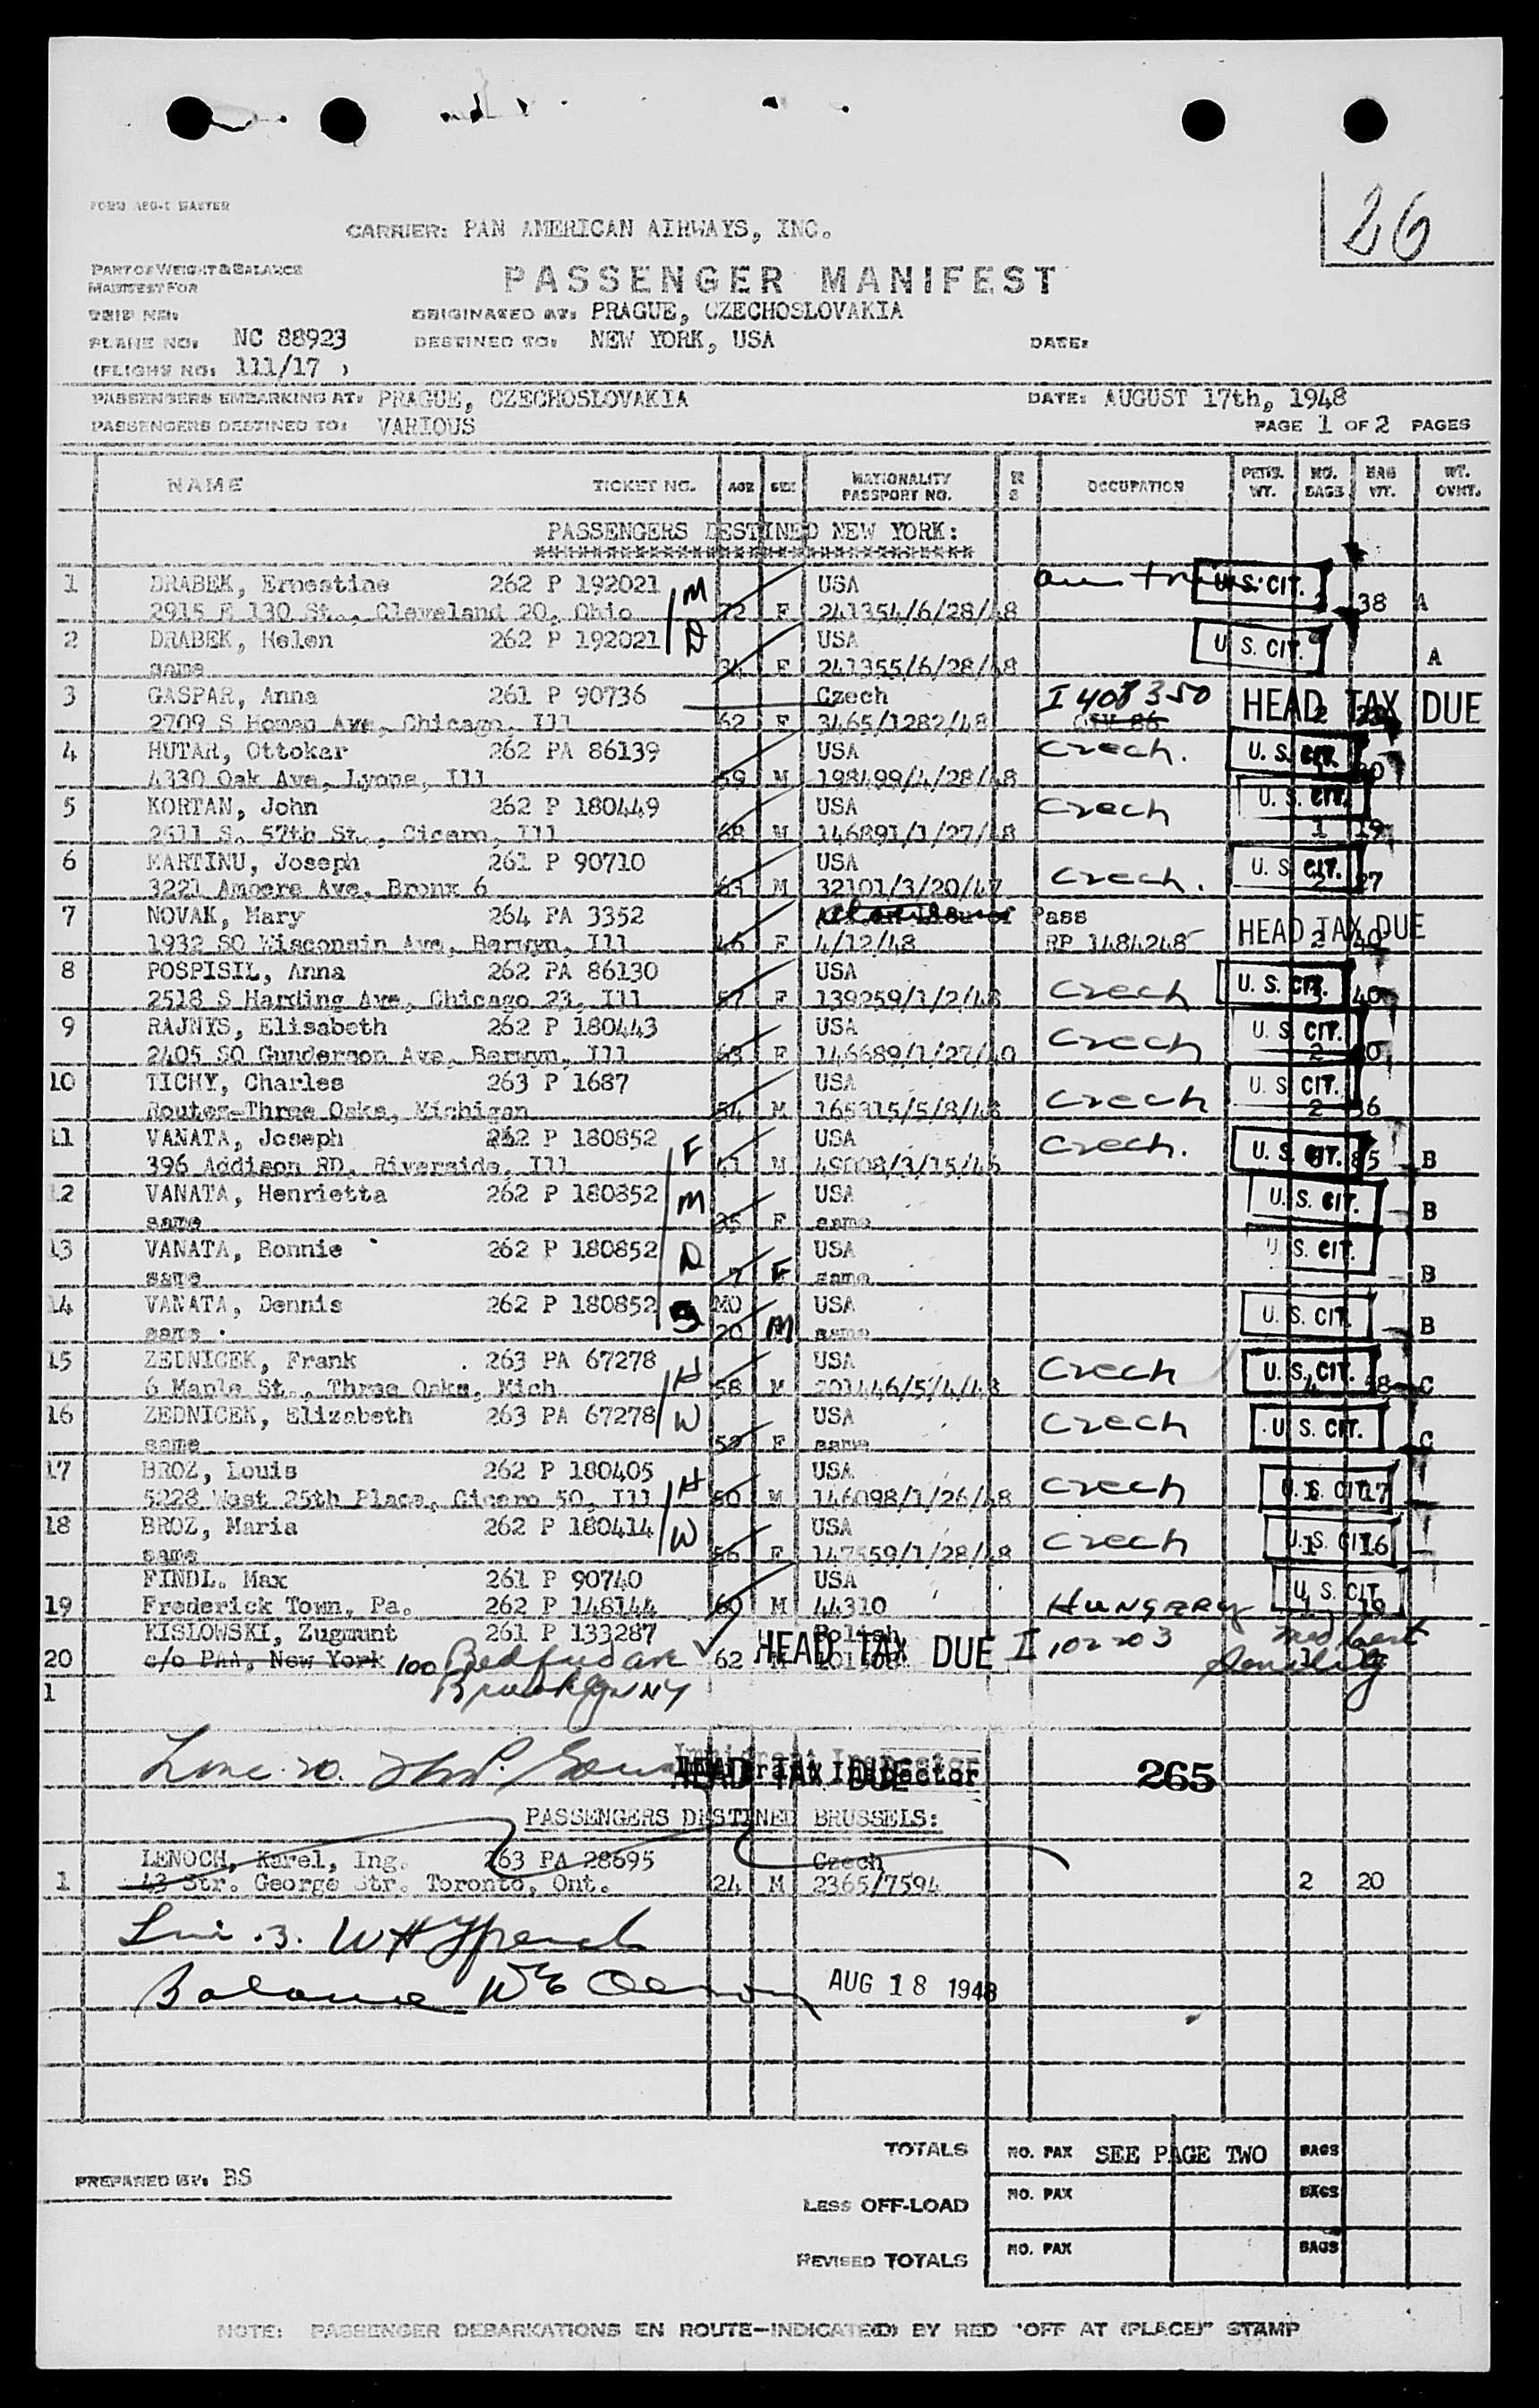 FORM AEO-1 MASTER
26
CARRIER: PAN AMERICAN AIRWAYS, INC.
PART OF WEIGHT & BALANCE
MANIFEST FOR
PASSENGER MANIFEST
TRIP NO: ORIGINATED AT: PRAGUE, CZECHOSLOVAKIA
PLANE NO: NC 88923 DESTINED TO: NEW YORK, USA DATE:
(FLIGHT NO: 111/17 )
PASSENGERS EMBARKING AT: PRAGUE, CZECHOSLOVAKIA DATE: AUGUST 17th, 1948
PASSENGERS DESTINED TO: VARIOUS PAGE 1 OF 2 PAGES
NAME TICKET NO. AGE SEX NATIONALITY PASSPORT NO. OCCUPATION WT. NO. BAGS BAG WT. WT. OVHT.
PASSENGERS DESTINED NEW YORK:
1 DRABEK, Ernestine 262 P 192021 M USA U. S. CIT.
2915 E 130 St., Cleveland 20, Ohio 72 F 241354/6/28/48 38 A
2 DRABEK, Helen 262 P 192021 D USA U. S. CIT.
same 34 F 241355/6/28/48 A
3 GASPAR, Anna 261 P 90736 Czech I 408350 HEAD TAX DUE
2709 S Homan Ave, Chicago, Ill 62 F 3465/1282/48 2
4 HUTAR, Ottokar 262 PA 86139 USA Czech. U. S. CIT.
4330 Oak Ave, Lyons, Ill 59 M 198499/4/28/48
5 KORTAN, John 262 P 180449 USA Czech U. S. CIT.
2511 S. 57th St., Cicero, Ill 68 M 146891/1/27/48 1 19
6 MARTINU, Joseph 261 P 90710 USA Czech. U. S. CIT.
3221 Ampere Ave, Bronx 6 63 M 32101/3/20/47 2 27
7 NOVAK, Mary 264 PA 3352 Pass HEAD TAX DUE
1932 SO Wisconsin Ave, Berwyn, Ill 46 F 4/12/48 RP 1484248 2 40
8 POSPISIL, Anna 262 PA 86130 USA Czech U. S. CIT.
2518 S Harding Ave, Chicago 23, Ill 57 F 139259/1/2/48 40
9 RAJNYS, Elisabeth 262 P 180443 USA Czech U. S. CIT.
2405 SO Gunderson Ave, Berwyn, Ill 63 F 146689/1/27/40 2
10 TICHY, Charles 263 P 1687 USA Czech U. S. CIT.
Routes-Three Oaks, Michigan 54 M 165315/5/8/48 2 36
11 VANATA, Joseph 262 P 180852 F USA Czech. U. S. CIT.
396 Addison RD, Riverside, Ill 61 M 49008/3/15/46 85 B
12 VANATA, Henrietta 262 P 180852 M USA U. S. CIT.
same 35 F same B
13 VANATA, Bonnie 262 P 180852 D USA U. S. CIT.
same 7 F same B
14 VANATA, Dennis 262 P 180852 S MO USA U. S. CIT.
same 20 M same B
15 ZEDNICEK, Frank 263 PA 67278 H USA Czech U. S. CIT.
6 Maple St., Three Oaks, Mich 58 M 201446/5/4/48 4 58 C
16 ZEDNICEK, Elizabeth 263 PA 67278 W USA Czech U. S. CIT.
same F same C
17 BROZ, Louis 262 P 180405 H USA Czech U. S. CIT.
5228 West 25th Place, Cicero 50, Ill 60 M 146098/1/26/48 17
18 BROZ, Maria 262 P 180414 W USA Czech U. S. CIT.
same 56 F 147559/1/28/48 1 16
FINDL. Max 261 P 90740 USA U. S. CIT.
19 Frederick Town, Pa. 262 P 148144 60 M 44310 HUNGARY 1 19
KISLOWSKI, Zugmunt 261 P 133287 Polish HEAD TAX DUE I 102203
20 c/o PAA, New York 100 Bedford ave 62 M
1 Brooklyn NY
Line 20.
Immigrant Inspector
HEAD TAX DUE
265
PASSENGERS DESTINED BRUSSELS:
LENOCH, Karel, Ing. 263 PA 28695 Czech
1 43 Str. George Str. Toronto, Ont. 24 M 2365/7594 2 20
Line 3. W H
Balance
AUG 18 1948
TOTALS NO. PAX SEE PAGE TWO BAGS
PREPARED BY: BS
LESS OFF-LOAD NO. PAX BAGS
REVISED TOTALS NO. PAX BAGS
NOTE: PASSENGER DEBARKATIONS EN ROUTE-INDICATE(D) BY RED "OFF AT (PLACE)" STAMP